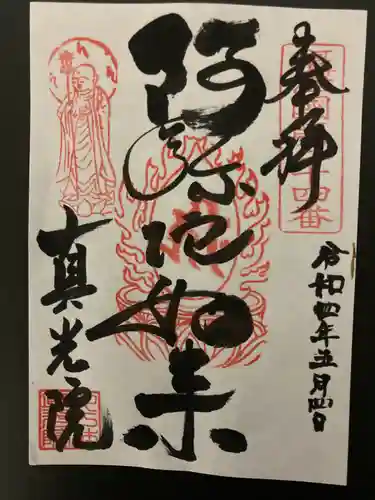 奉拝
令和四年五月四日
阿弥陀如来
真光院